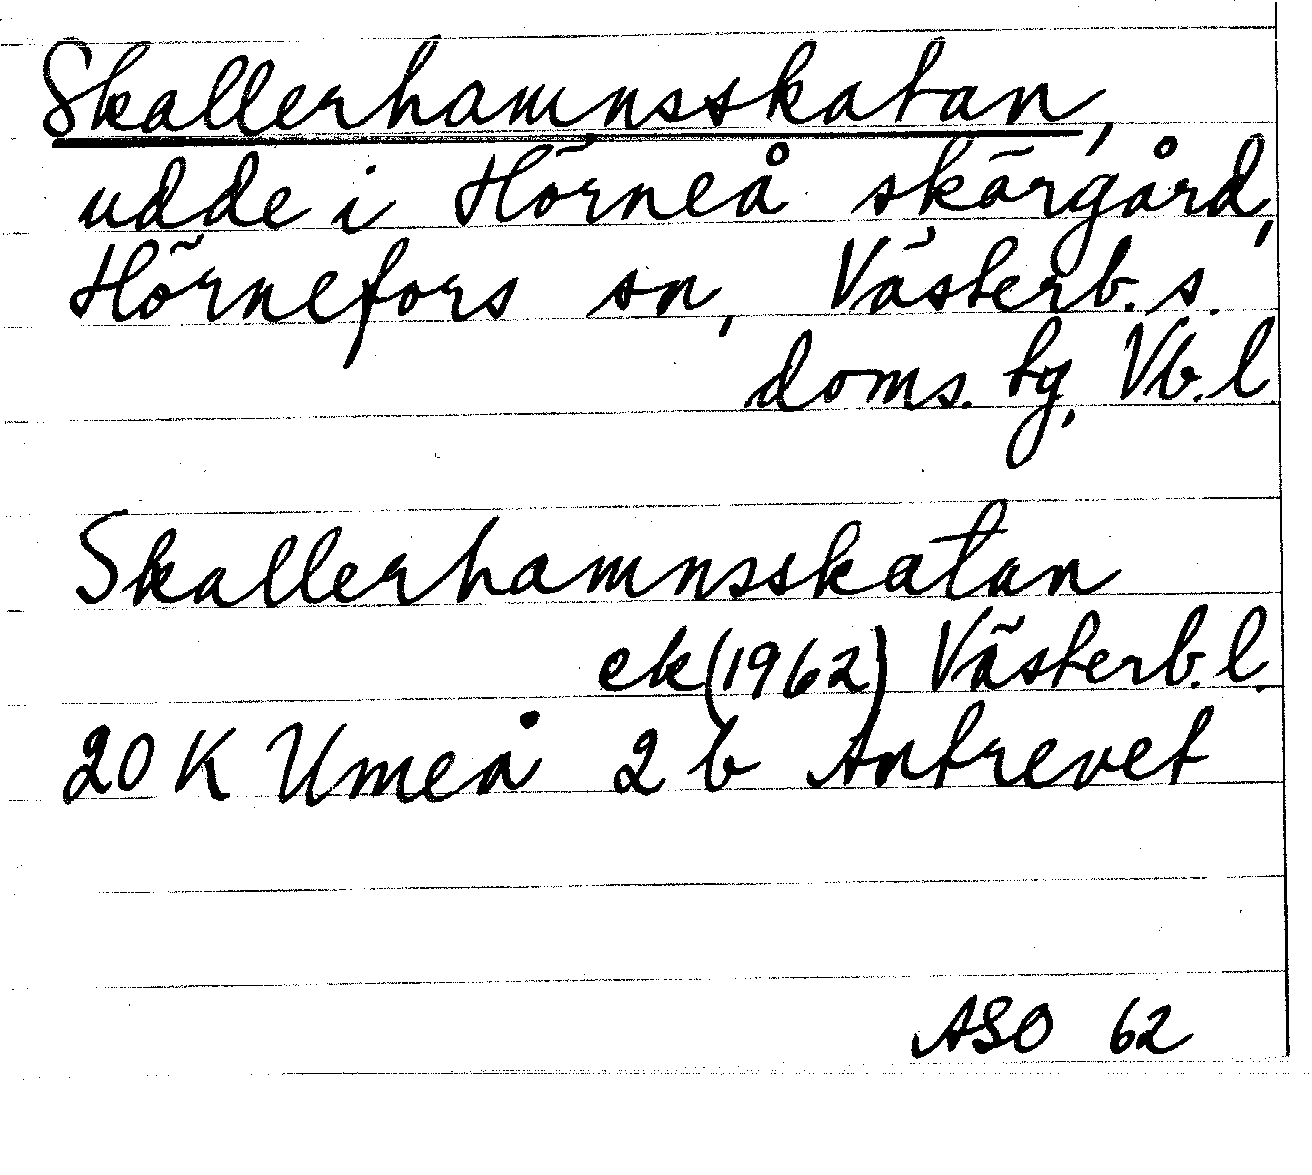 Skallerhamnsskatan,
udde i Hörneå skärgård,
Hörnefors sn, Västerb. s.
doms. tg, Vb. l.
Skallerhamnsskatan
ek (1962) Västerb. l.
20 K Umeå 2 b Antrevet
ASO 62